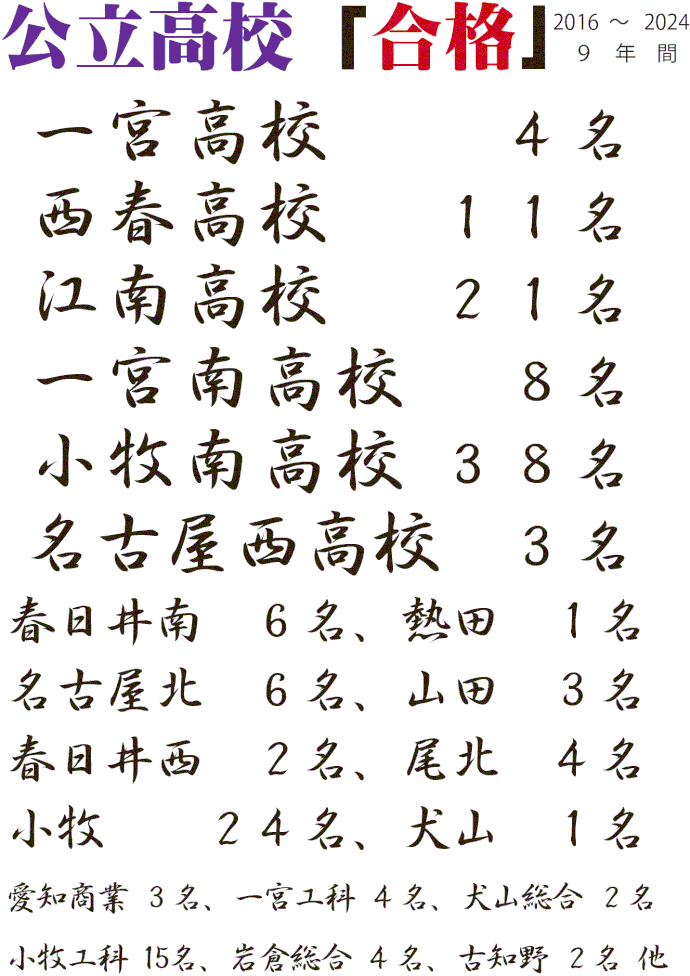 公立高校「合格」2016 ～ 2024
9 年 間
一宮高校 4 名
西春高校 1 1 名
江南高校 2 1 名
一宮南高校 8 名
小牧南高校 3 8 名
名古屋西高校 3 名
春日井南 6 名、熱田 1 名
名古屋北 6 名、山田 3 名
春日井西 2 名、尾北 4 名
小牧 2 4 名、犬山 1 名
愛知商業 3 名、一宮工科 4 名、犬山総合 2 名
小牧工科 15名、岩倉総合 4 名、古知野 2 名 他